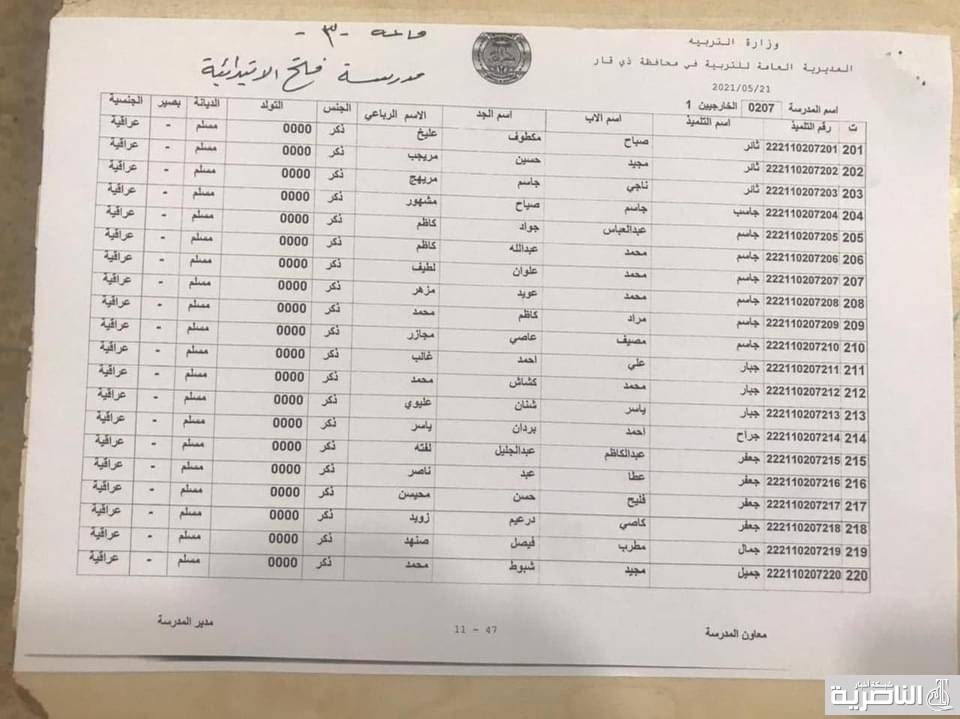 وزارة التربيه
المديرية العامة للتربية في محافظة ذي قار
قاعه -٣-
مدرسة فلح الابتدائية
2021/05/21
اسم المدرسة 0207 الخارجيين 1
ت رقم التلميذ اسم التلميذ اسم الاب اسم الجد الاسم الرباعي الجنس التولد الديانة بصير الجنسية
201 222110207201 ثائر صباح مكطوف عليخ ذكر 0000 مسلم - عراقية
202 222110207202 ثائر مجيد حسين مريجب ذكر 0000 مسلم - عراقية
203 222110207203 ثائر ناجي جاسم مريهج ذكر 0000 مسلم - عراقية
204 222110207204 جاسب جاسم صباح مشهور ذكر 0000 مسلم - عراقية
205 222110207205 جاسم عبدالعباس جواد كاظم ذكر 0000 مسلم - عراقية
206 222110207206 جاسم محمد عبدالله كاظم ذكر 0000 مسلم - عراقية
207 222110207207 جاسم محمد علوان لطيف ذكر 0000 مسلم - عراقية
208 222110207208 جاسم محمد عويد مزهر ذكر 0000 مسلم - عراقية
209 222110207209 جاسم مراد كاظم محمد ذكر 0000 مسلم - عراقية
210 222110207210 جاسم مصيف عاصي مجازر ذكر 0000 مسلم - عراقية
211 222110207211 جبار علي احمد غالب ذكر 0000 مسلم - عراقية
212 222110207212 جبار محمد كشاش محمد ذكر 0000 مسلم - عراقية
213 222110207213 جبار ياسر شنان عليوي ذكر 0000 مسلم - عراقية
214 222110207214 جراح احمد بردان ياسر ذكر 0000 مسلم - عراقية
215 222110207215 جعفر عبدالكاظم عبدالجليل لفته ذكر 0000 مسلم - عراقية
216 222110207216 جعفر عطا عبد ناصر ذكر 0000 مسلم - عراقية
217 222110207217 جعفر فليح حسن محيسن ذكر 0000 مسلم - عراقية
218 222110207218 جعفر كاصي درعيم زويد ذكر 0000 مسلم - عراقية
219 222110207219 جمال مطرب فيصل صنهد ذكر 0000 مسلم - عراقية
220 222110207220 جميل مجيد شبوط محمد ذكر 0000 مسلم - عراقية
معاون المدرسة 11 - 47 مدير المدرسة
شبكة أخبار
الناصرية